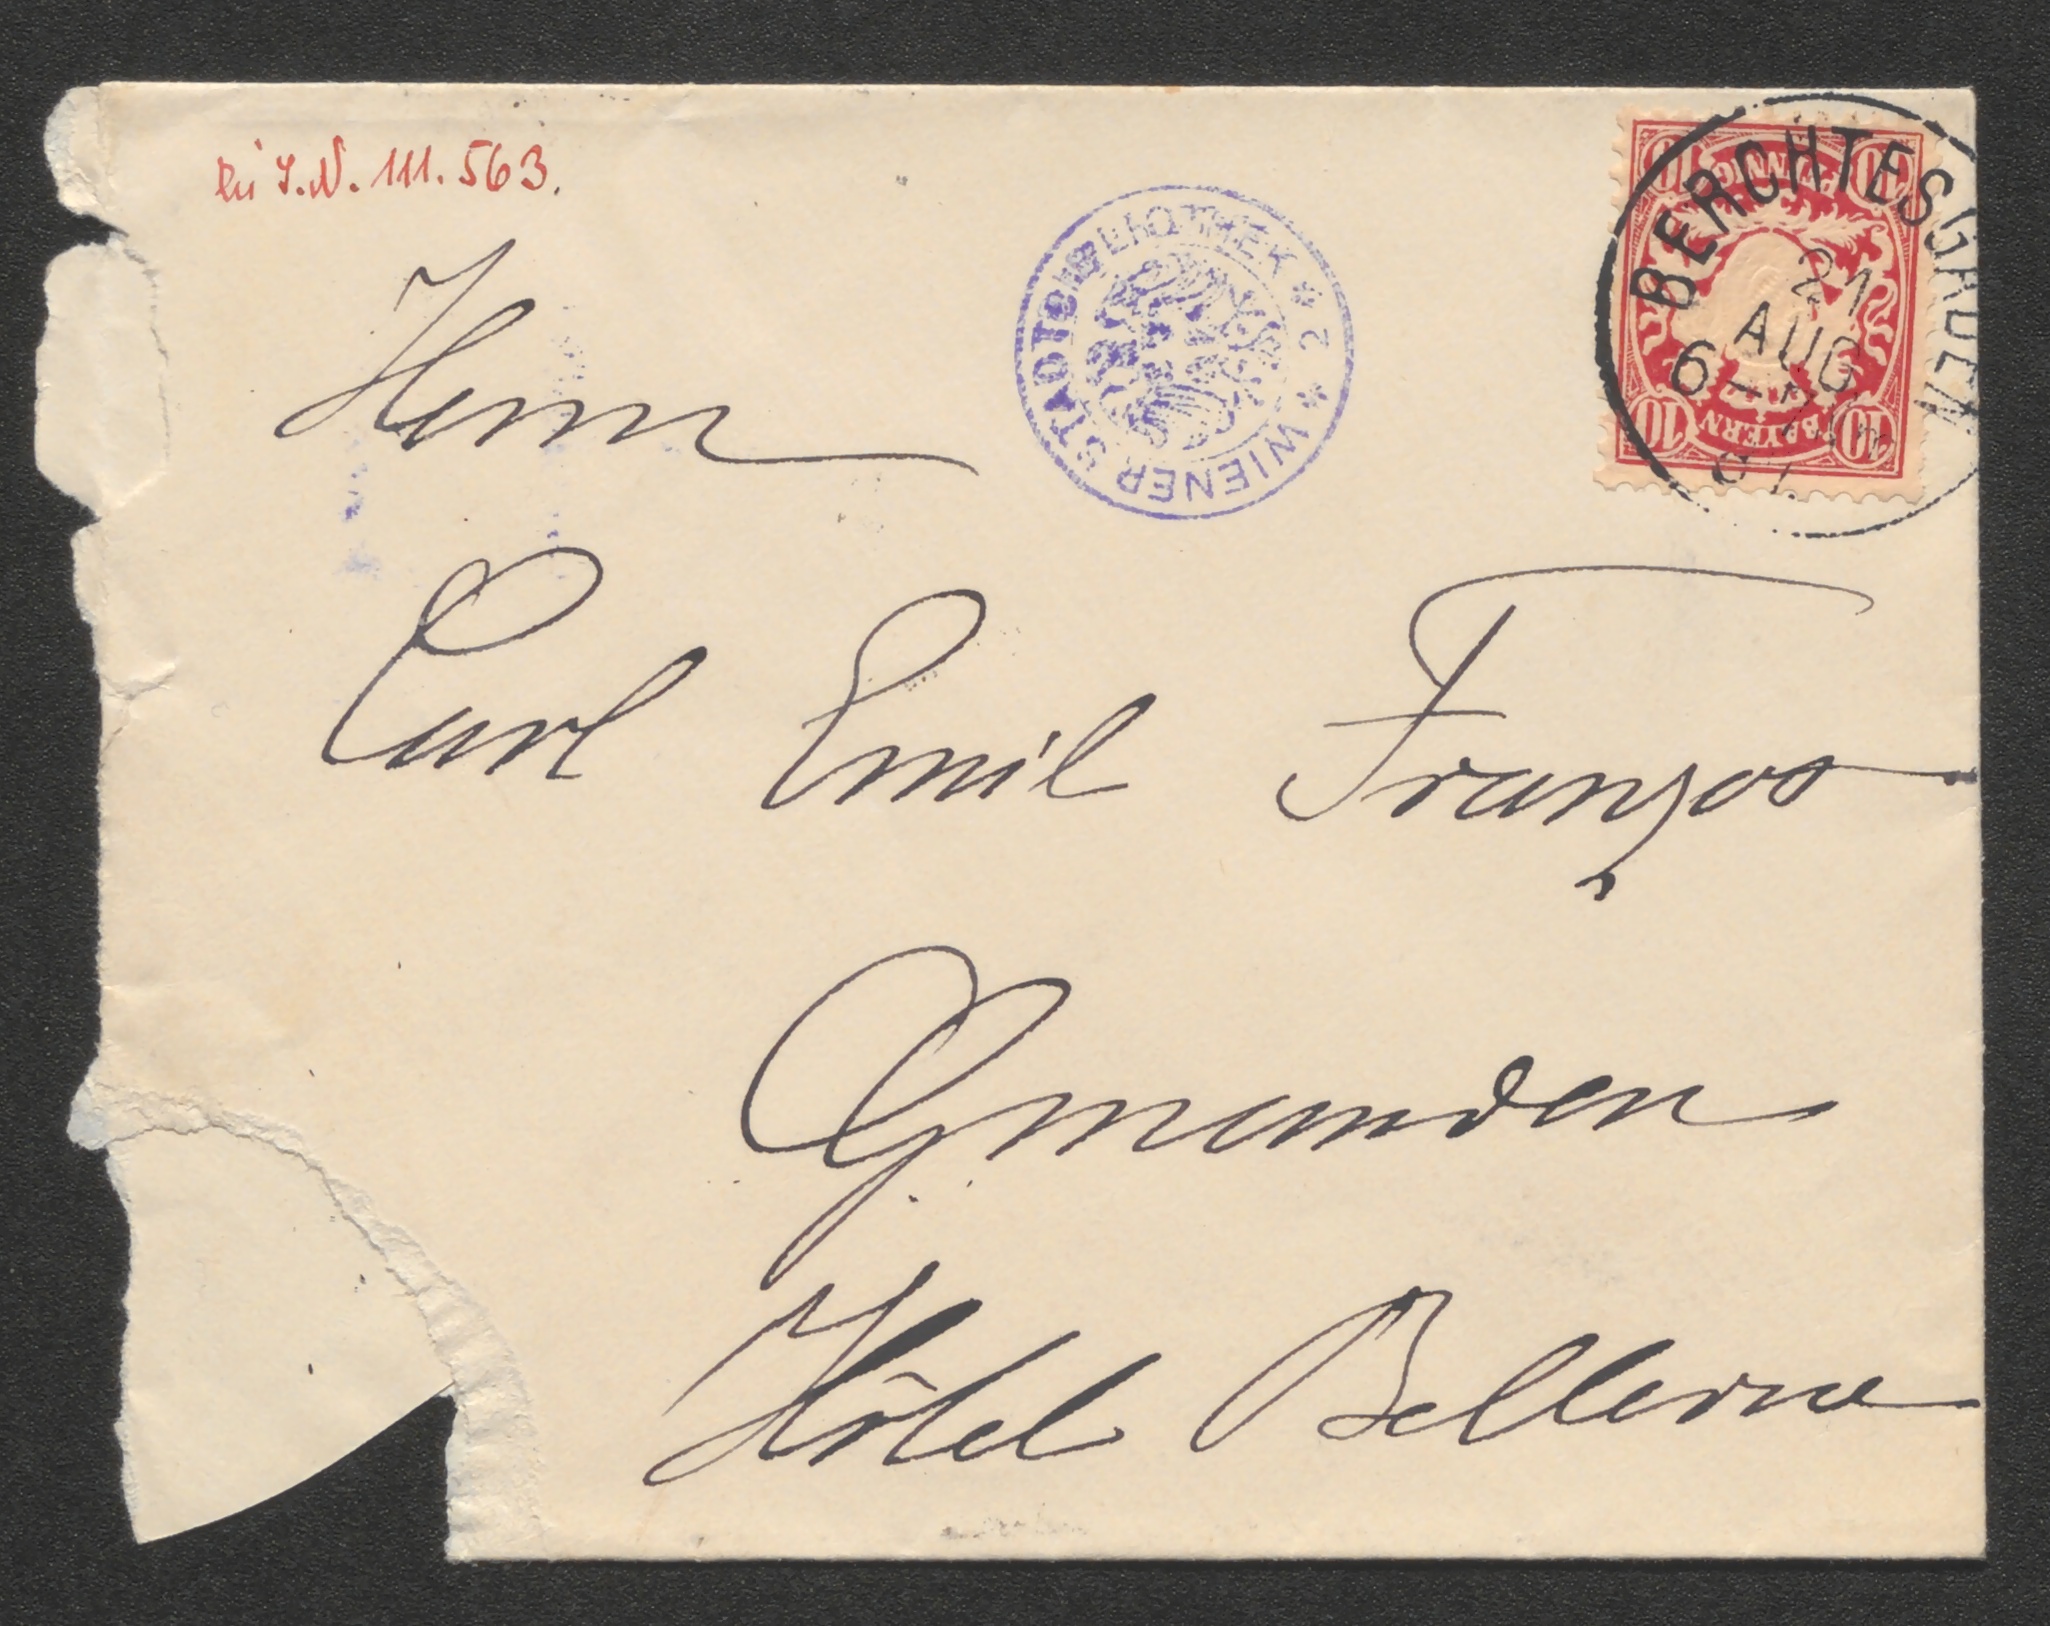 bei I.N. 111.563.
WIENER STADTBIBLIOTHEK * 2 *
BERCHTESGADEN
21
AUG
6-7 Nm
PFENNIG
10 10
BAYERN
10 10
Herrn
Carl Emil Franzos
Gmunden
Hôtel Bellevue